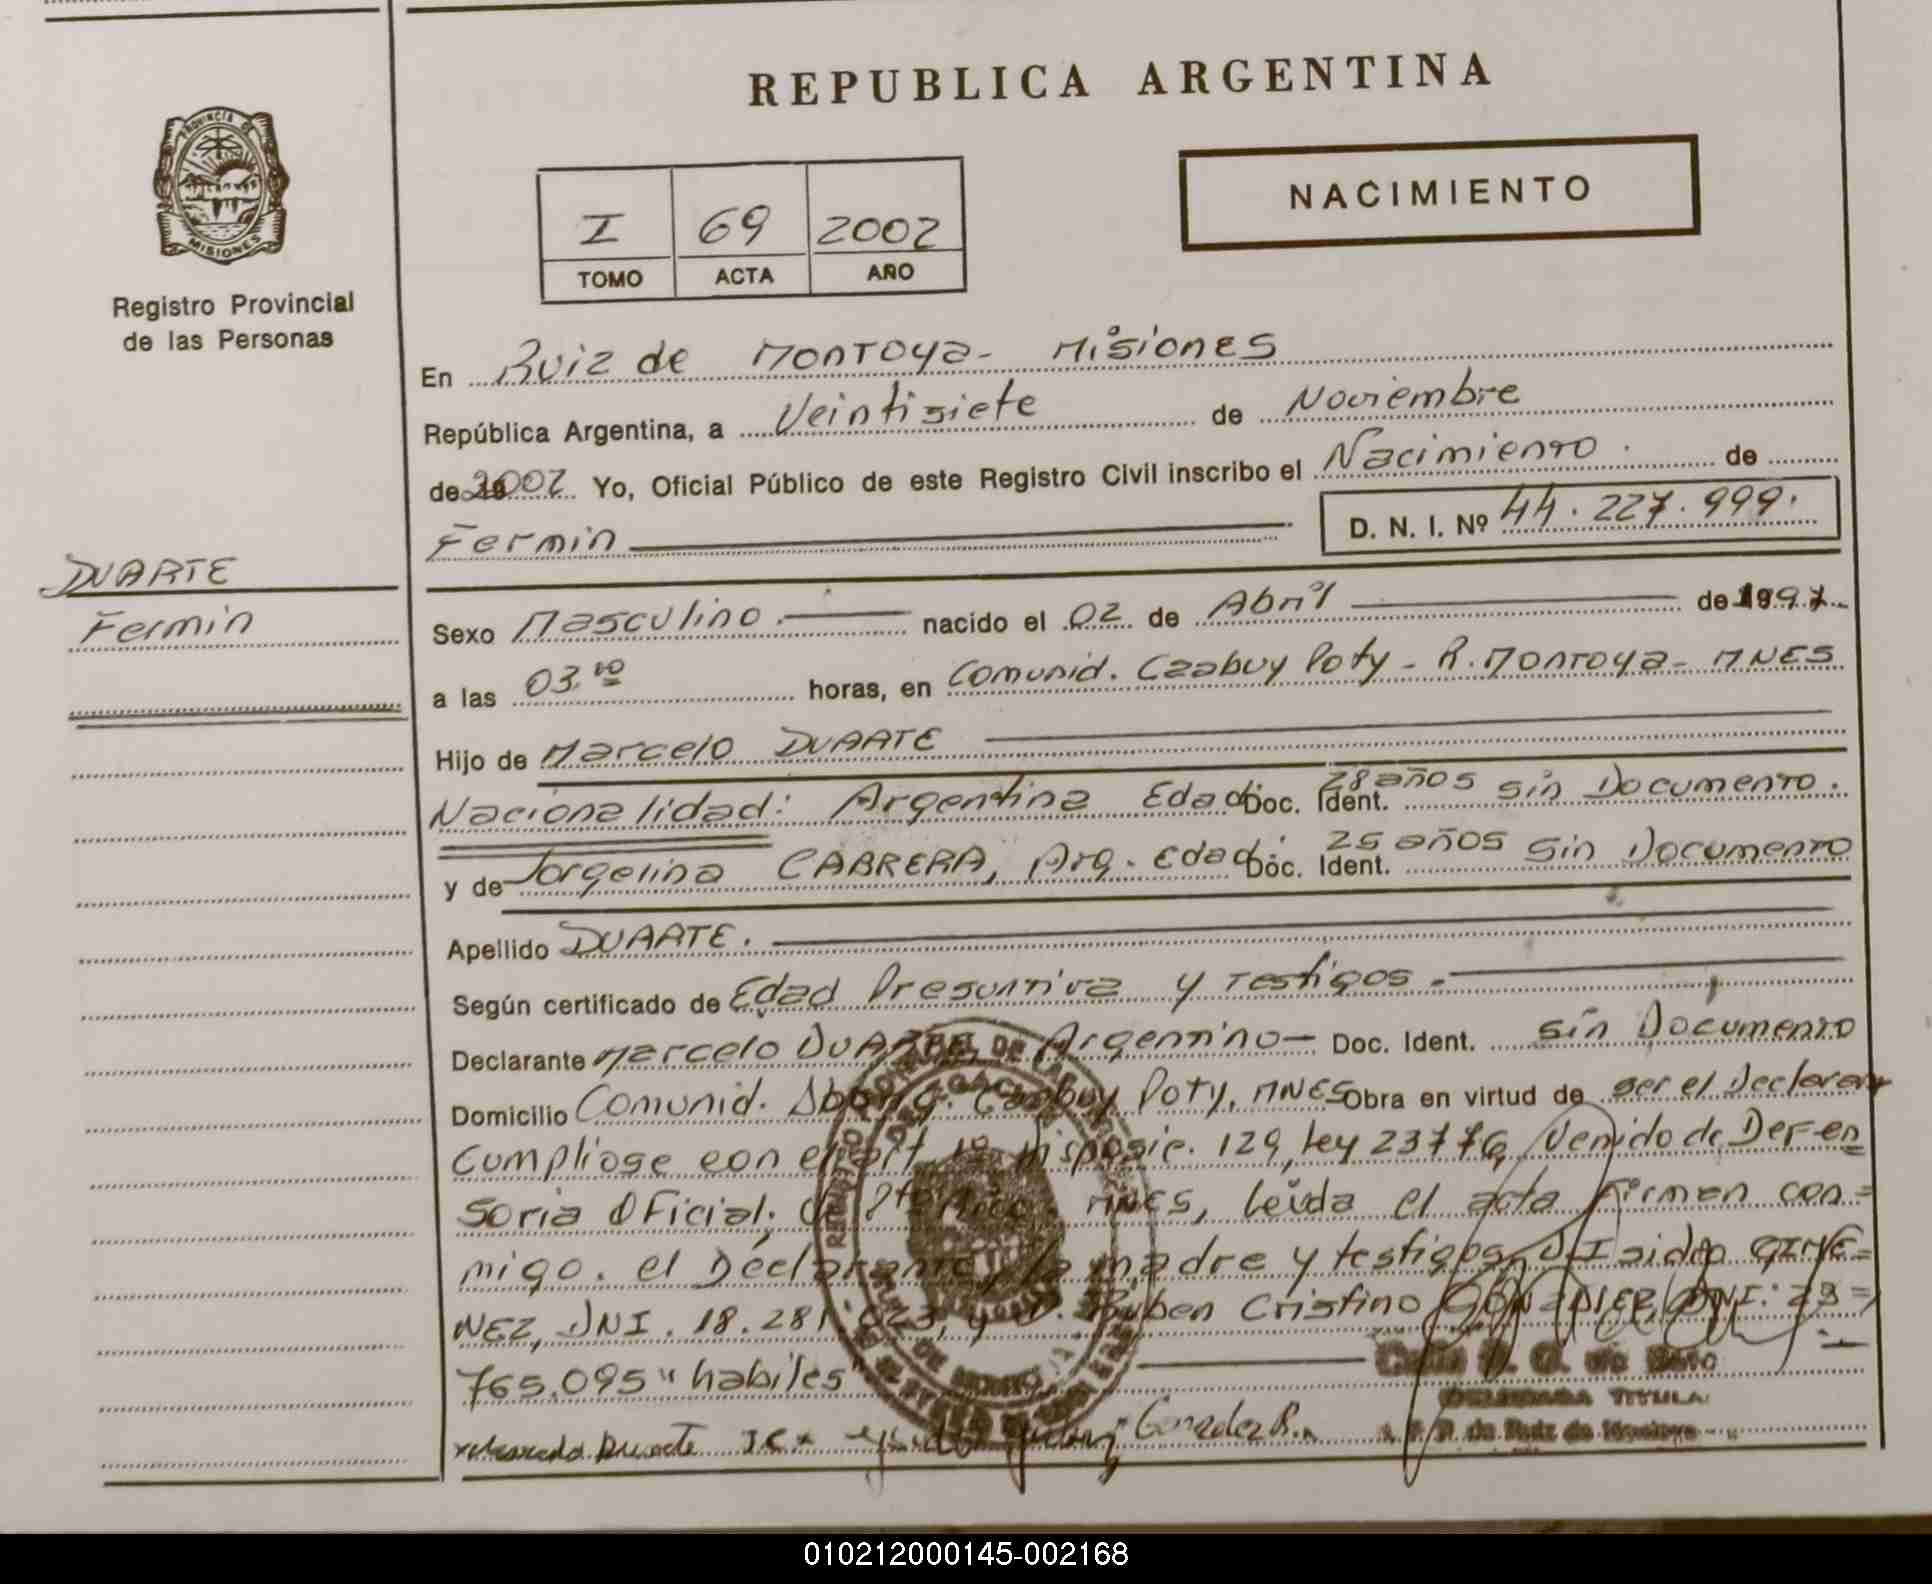 REPUBLICA ARGENTINA
PROVINCIA DE
MISIONES
Registro Provincial
de las Personas
NACIMIENTO
I 69 2002
TOMO ACTA AÑO
En Ruiz de Montoya - Misiones
República Argentina, a Veintisiete de Noviembre
de 2002 Yo, Oficial Público de este Registro Civil inscribo el Nacimiento. de
Fermin D. N. I. Nº 44.227.999.
DUARTE
Fermin
Sexo Masculino. nacido el 02 de Abril de 1997
a las 03.00 horas, en Comunid. Caabuy Poty - R. Montoya - MNES
Hijo de Marcelo DUARTE
Nacionalidad: Argentina Edad Doc. Ident. 28 años sin Documento.
y de Jorgelina CABRERA, Arg. Edad. Doc. Ident. 25 años sin Documento
Apellido DUARTE.
Según certificado de Edad Presuntiva y testigos.
Declarante Marcelo DUARTE, Argentino - Doc. Ident. sin Documento
Domicilio Comunid. Aborig. Caabuy Poty, MNES Obra en virtud de ser el Declarant
Cumpliose con el art. Disposic. 129, Ley 23776, Venido de Defen
soria Oficial. de MNES, leida el acta firman con=
migo. el Declarante, la madre y testigos, D. Isidro GIME=
NEZ, DNI. 18.281.023, y D. Ruben Cristino GONZALEZ, DNI: 23=
765.095 "habiles"
Duarte J C Gonzalez R.
DELEGADA TITULA
R. P. P. de Ruiz de Montoya
010212000145-002168